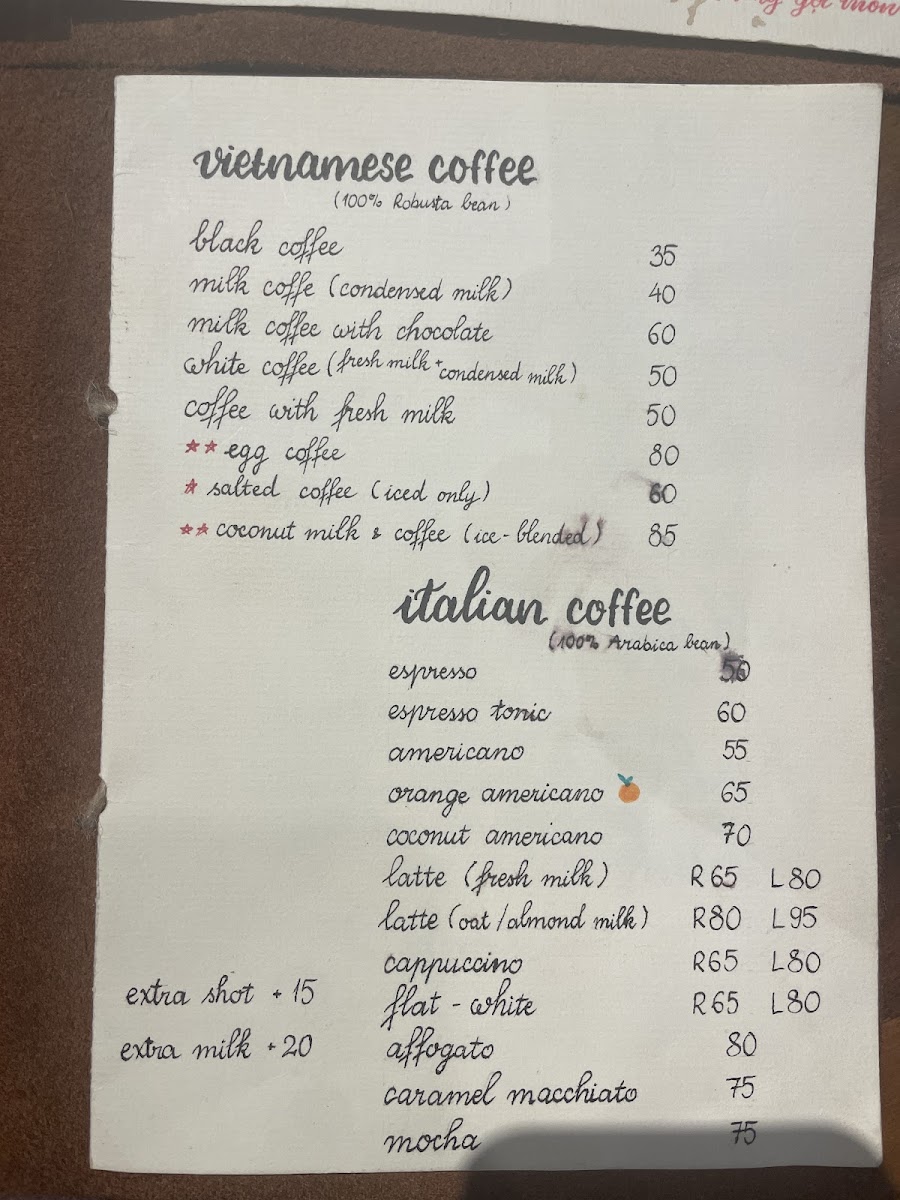 gọi món
vietnamese coffee
(100% Robusta bean)
black coffee 35
milk coffe (condensed milk) 40
milk coffee with chocolate 60
white coffee (fresh milk + condensed milk) 50
coffee with fresh milk 50
★★ egg coffee 80
★ salted coffee (iced only) 60
★★ coconut milk & coffee (ice-blended) 85
italian coffee
(100% Arabica bean)
espresso 50
espresso tonic 60
americano 55
orange americano 65
coconut americano 70
latte (fresh milk) R65 L80
latte (oat/almond milk) R80 L95
cappuccino R65 L80
flat-white R65 L80
affogato 80
caramel macchiato 75
mocha 75
extra shot + 15
extra milk + 20